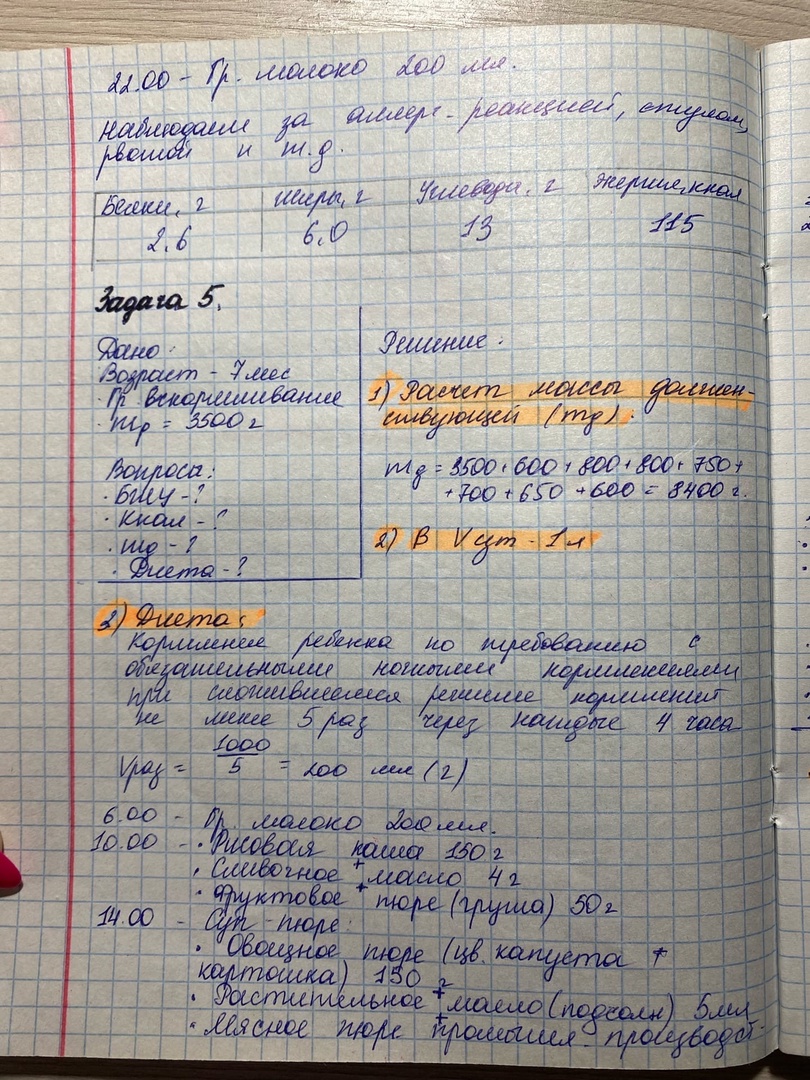 22.00 - Гр. молоко 200 мл.
Наблюдаем за аллерг. реакцией, стулом,
рвотой и т.д.
Белки, г Жиры, г Углеводы, г Энергия, ккал
2,6 6,0 13 115
Задача 5.
Дано:
Возраст - 7 мес
Гр. вскармливание
· mр = 3500 г
Вопросы:
· БЖУ - ?
· Ккал - ?
· mд - ?
· Диета - ?
Решение:
1) Расчет массы должен-
ствующей (mд):
mд = 3500 + 600 + 800 + 800 + 750 +
+ 700 + 650 + 600 = 8400 г.
2) В V сут - 1 л
3) Диета:
Кормление ребенка по требованию с
обязательными ночными кормлениями
при сложившемся режиме кормлений
не менее 5 раз через каждые 4 часа
Vраз = 1000/5 = 200 мл (г)
6.00 - Гр. молоко 200 мл.
10.00 - · Рисовая каша 150 г
+
· Сливочное масло 4 г
+
· Фруктовое пюре (груша) 50 г
14.00 - Суп-пюре:
· Овощное пюре (цв. капуста +
картошка) 150 г
+
· Растительное масло (подсолн) 5 мл
+
· Мясное пюре промышл. производст-